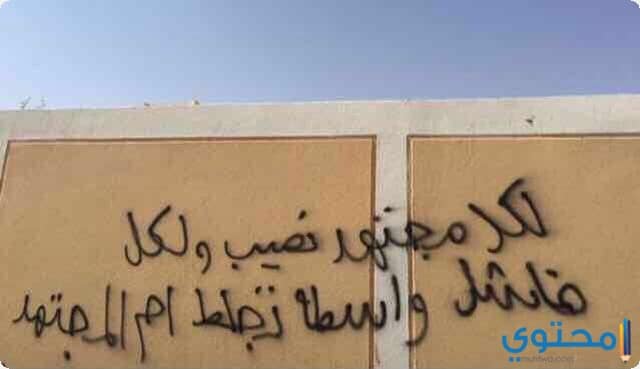 لكل مجتهد نصيب ولكل
فاشل واسطة تجلط ام المجتهد
محتوي
muhtwa.com